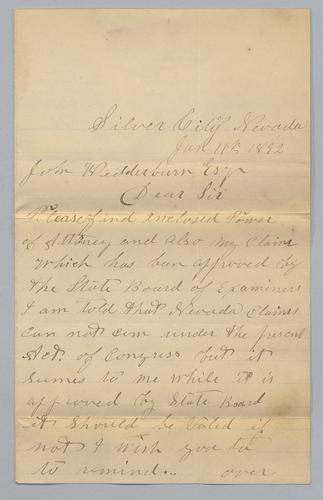 Silver City Nevada
Jan 11th 1892
John Wedderburn Esqr
Dear Sir
Please find enclosed Power
of Attorney and also my Claim
which has ban approved by
the State Board of Examiners
I am told that Nevada Claims
can not com under the present
Act. of Congress but it
sumes to me while it is
approved by State Board
it should be valid if
not I wish you to
to remind.. over